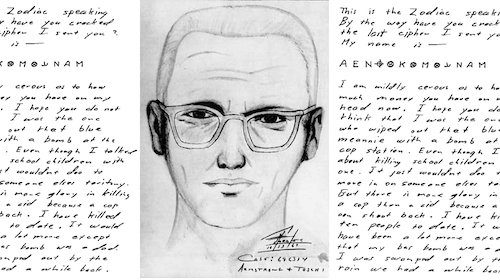 Zodiac speaking
have you cracked
cipher I sent you ?
is —
cerous as to how
you have on my
I hope you do not
I was the one
out that blue
with a bomb at the
. Even though I talked
school children with
just wouldnt doo to
someone elses teritory.
is more glory in killing
a cid because a cop
back. I have killed
to date. It would
a lot more except
bus bomb was a dud
out by the
a while back.
10/18/69
This is the Zodiac speaking
By the way have you cracked
the last cipher I sent you ?
My name is —
I am mildly cerous as to how
much money you have on my
head now. I hope you do not
think that I was the one
who wiped out that blue
meannie with a bomb at the
cop station. Even though I
about killing school children
one. It just wouldnt doo
move in on someone elses
But there is more glory in
a cop than a cid because
can shoot back. I have
ten people to date. It
have been a lot more
that my bus bomb was
I was swamped out by
rain we had a while back.